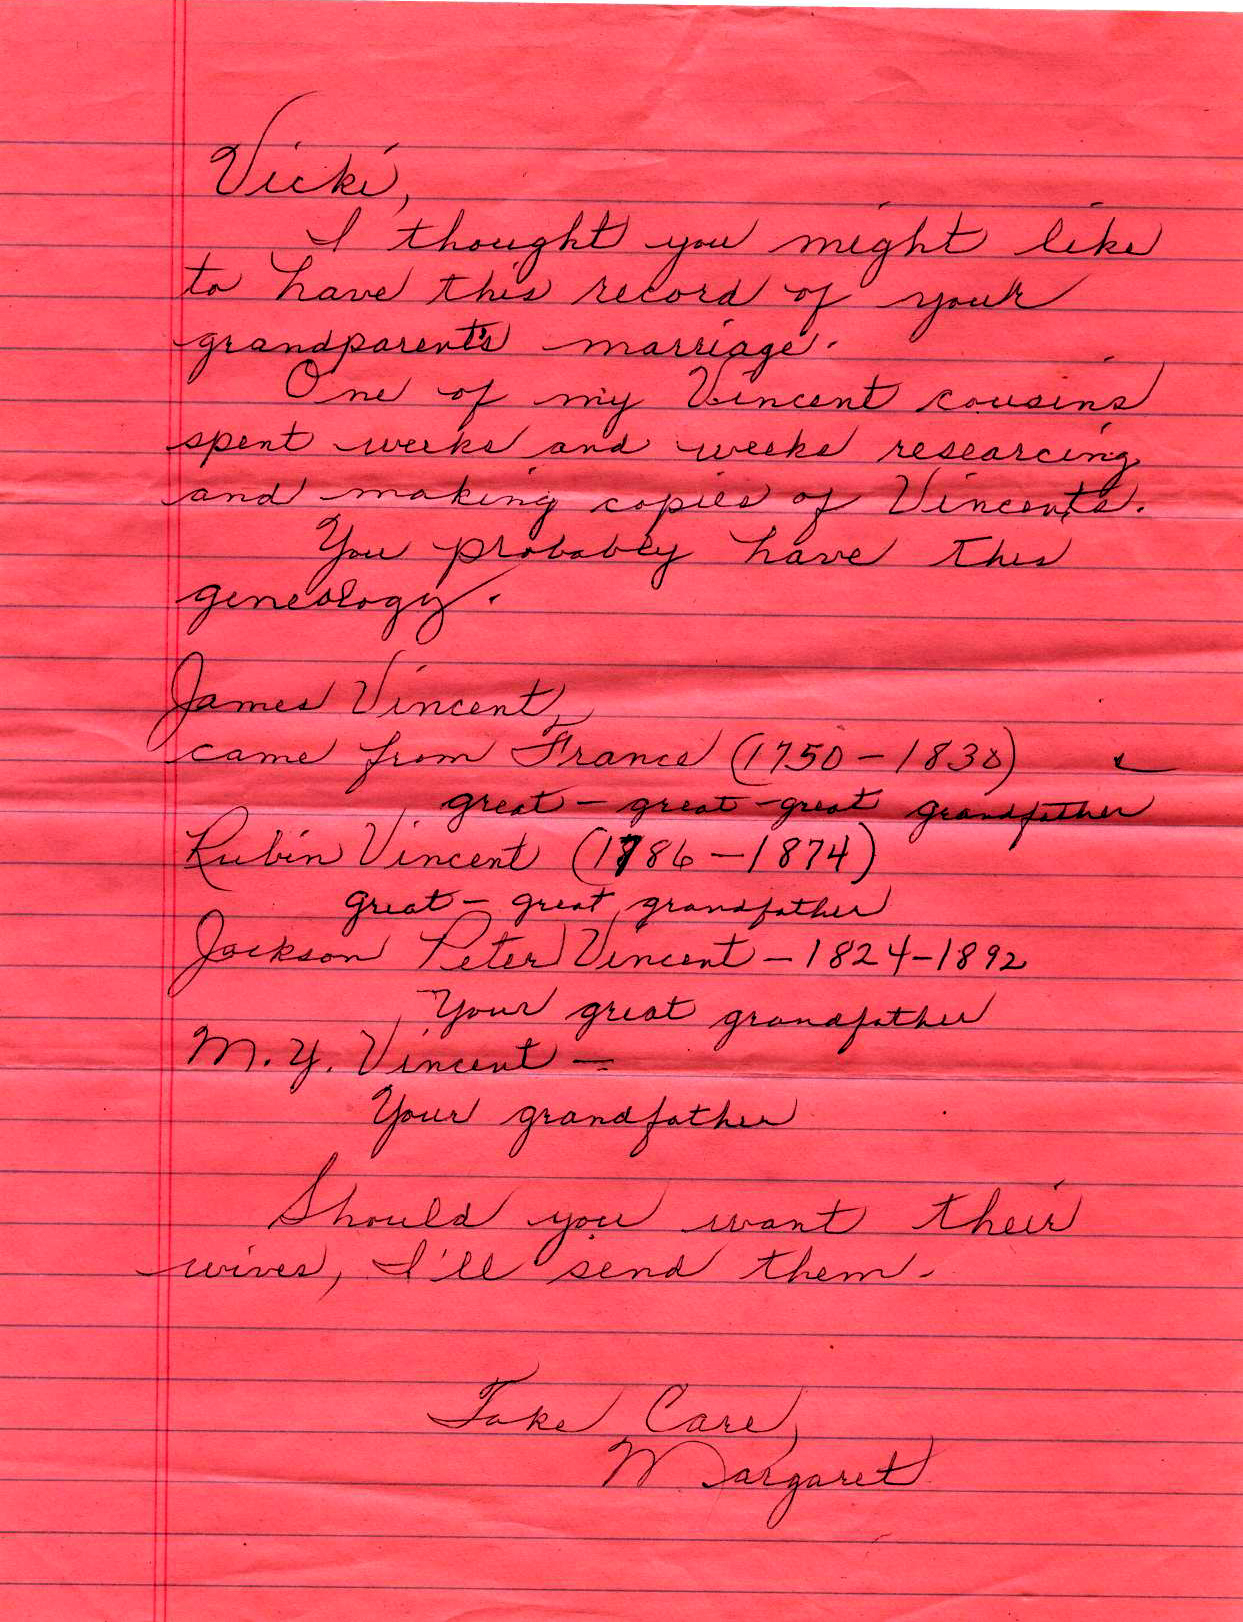 Vicki,
I thought you might like
to have this record of your
grandparent's marriage.
One of my Vincent cousins
spent weeks and weeks researcing
and making copies of Vincents.
You probably have this
geneology.
James Vincent,
came from France (1750-1830)
great-great-great grandfather
Rubin Vincent (1786-1874)
great-great grandfather
Jackson Peter Vincent-1824-1892
Your great grandfather
M.Y. Vincent-
Your grandfather
Should you want their
wives, I'll send them.
Take Care,
Margaret